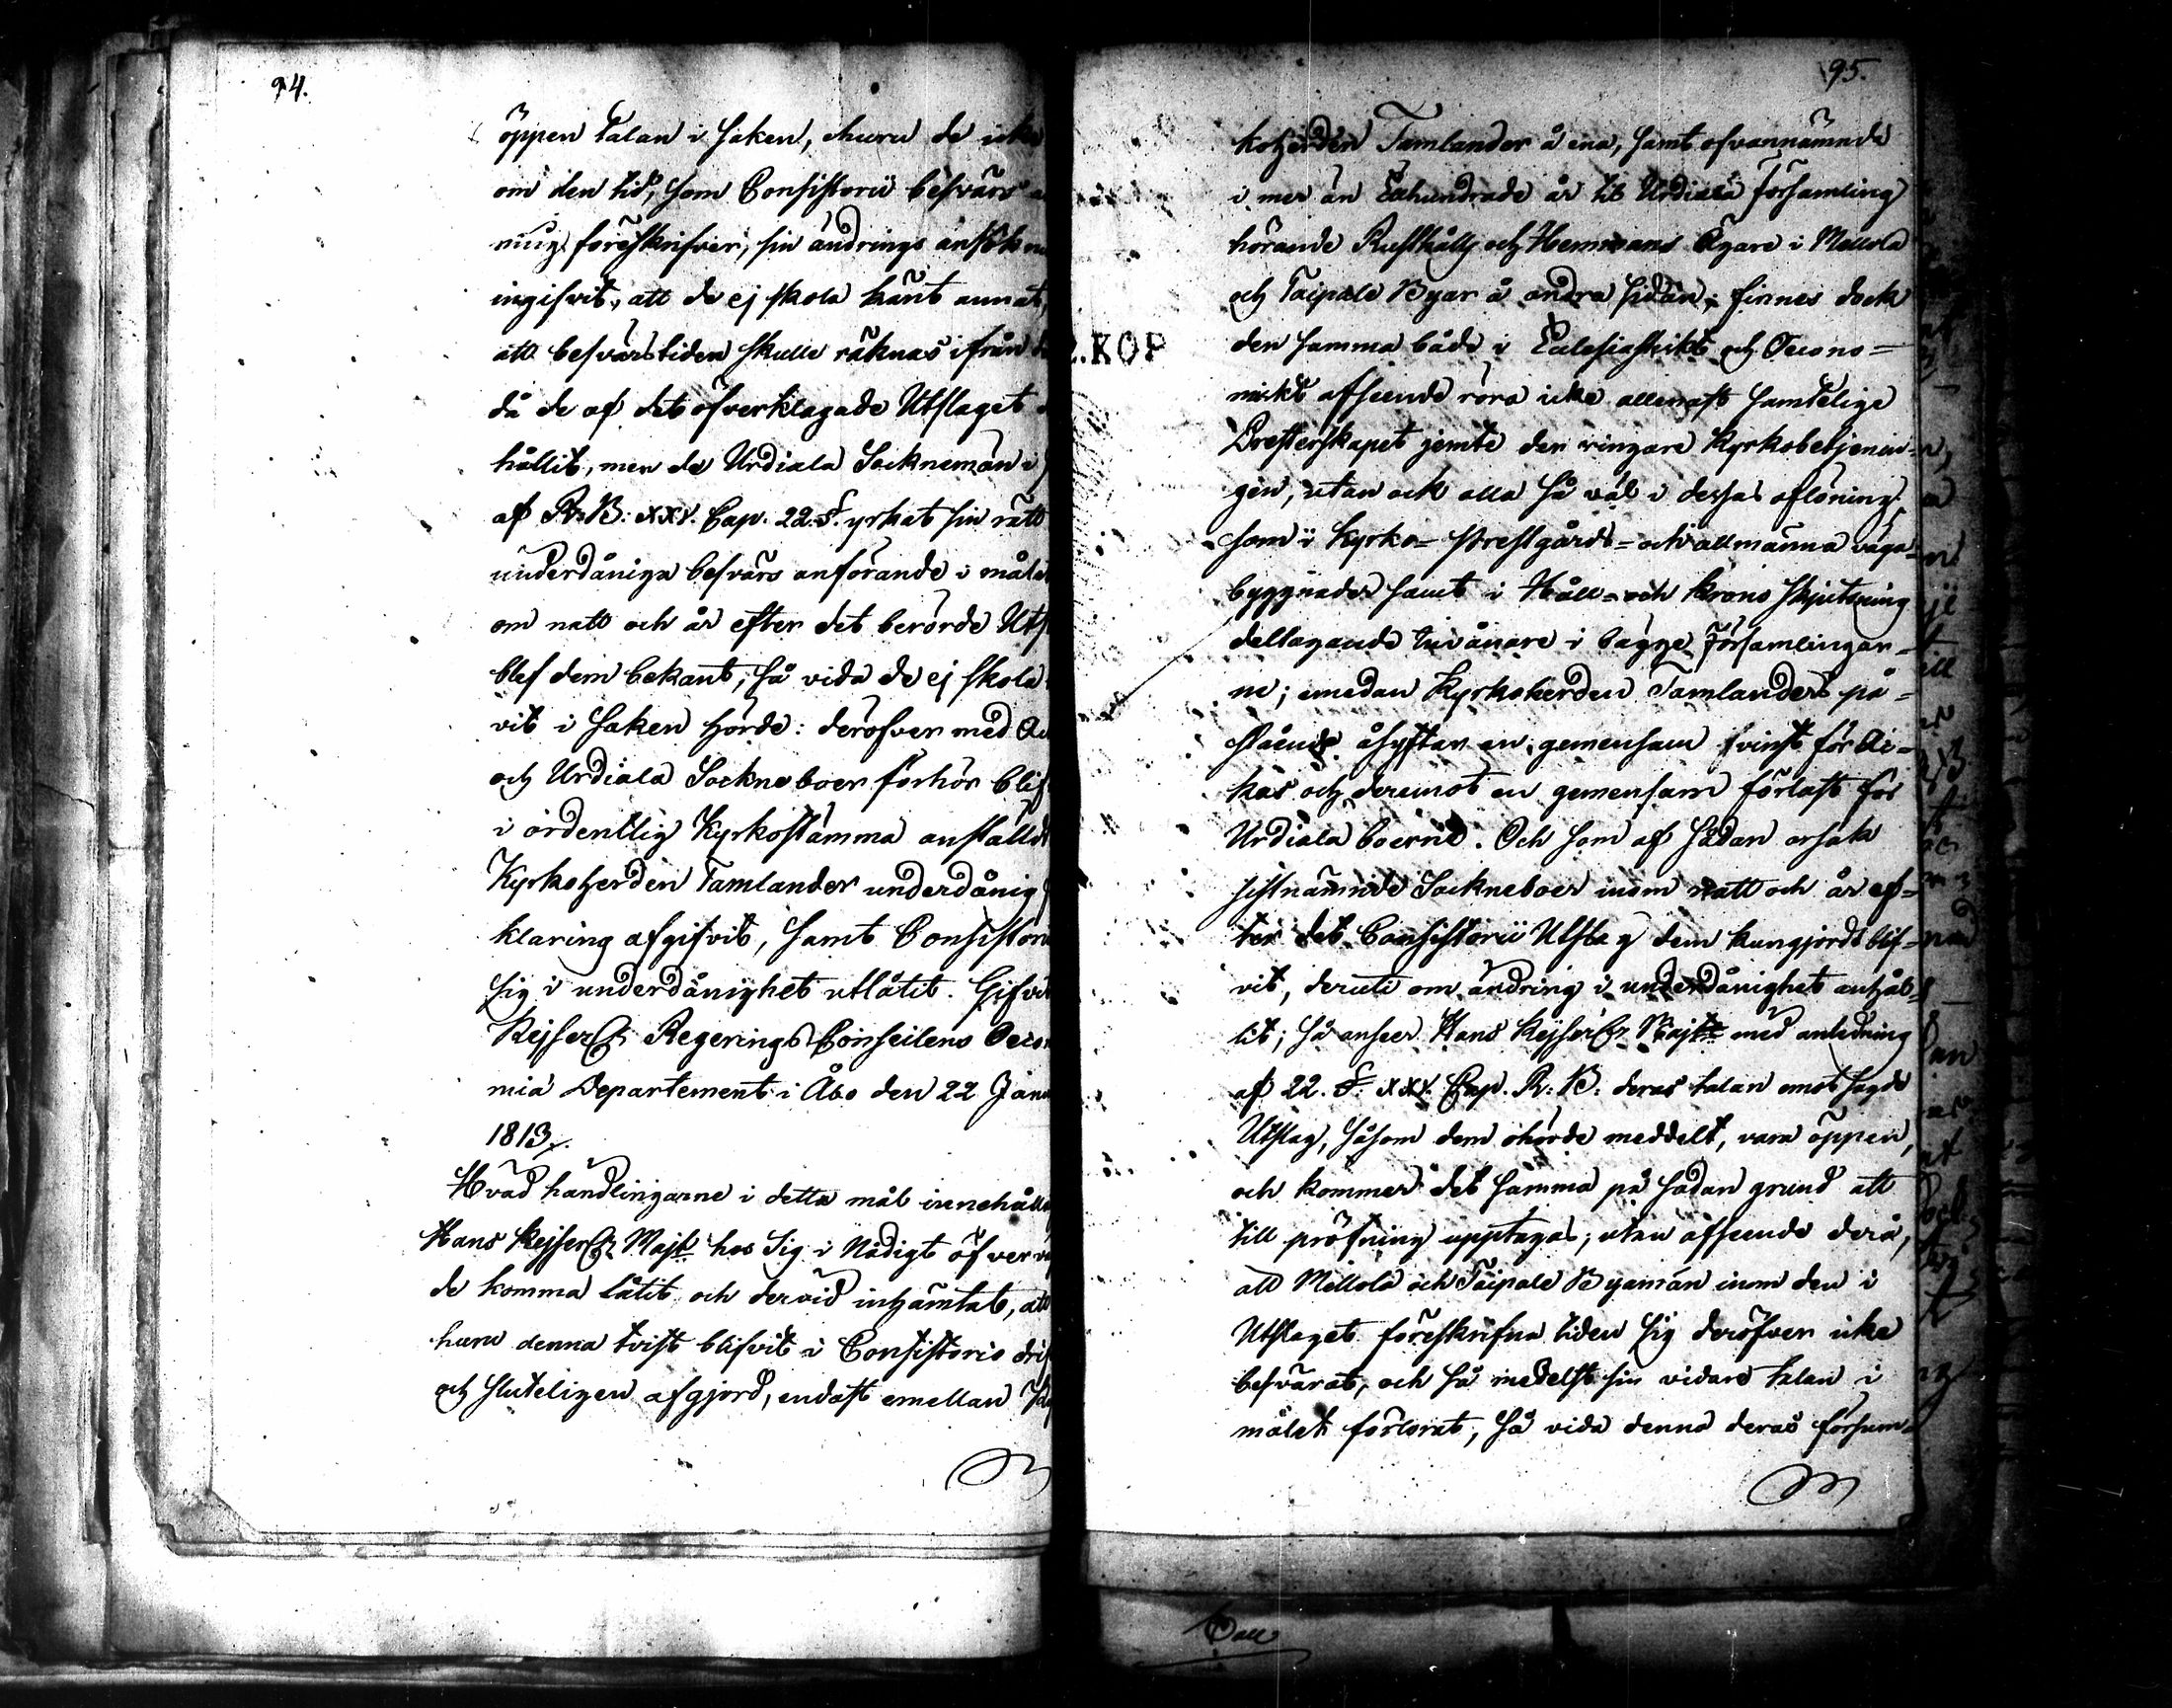 94.
öppen talan i saken, ehuru de icke
om den tid, som Consistorii besvärs
ning föreskrifver, sin ändrings ansökn
ingifvit, att de ej skola känt annat,
att besvärstiden skulle räknas ifrån
då de af det öfverklagade Utslaget
hållit, men de Urdiala Socknemän
af R: B: XXV. Cap. 22. §. yrkat sin rätt
underdåniga besvärs anförande i målet
om natt och år efter det berörde Uts
blef dem bekant, så vida de ej skola
vit i saken hörde: deröfver med
och Urdiala Sockneboer förhör blif
i ordentlig Kyrkostämma anstäldt
Kyrkoherden Tamlander underdånig
klaring afgifvit, samt Consistori
sig i underdånighet utlåtit. Gifvit
Kejserl. Regerings Conseilens Oecon
mia Departement i Åbo den 22 Janu
1813.
Hvad handlingarne i detta mål innehålla
Hans Kejserl. Majt. hos Sig i Nådigt öfver
de komma låtit och dervid inhämtat, att
huru denna tvist blifvit i Consistorio drif
och sluteligen afgjord, endast emellan
95.
koherden Tamlander å ena, samt ofvannämnde
i mer än Etthundrade år til Urdiala Församling
hörande Rusthålls och Hemmans Ägare i Mellola
och Taipale Byar å andra sidan, finnes dock
den samma både i Ecclesiastikt och Oecono-
miskt afseende röra icke allenast samtelige
Presterskapet jemte den ringare Kyrkobetjenin-
gen, utan ock alla så väl i dessas aflöning,
som i Kyrko- Prestgårds- och allmänna väga-
byggnader samt i Håll- och Krono skjutsning
deltagande Invånare i bägge Församlingar-
ne; emedan Kyrkoherden Tamlanders på-
stående åsyftar en gemensam vinst för Ac-
kas och deremot en gemensam förlust för
Urdiala boerne. Och som af sådan orsak
sistnämnde Sockneboer inom natt och år ef-
ter det Consistorii Utslag dem kungjordt blif-
vit, deruti om ändring i underdånighet anhål-
lit; så anser Hans Kejserl. Majt med anledning
af 22. §. XXV. Cap. R: B: deras talan emot sagde
Utslag, såsom dem ohörde meddelt, vara öppen,
och kommer det samma på sådan grund att
till pröfning upptagas, utan afseende derå,
att Mellola och Taipale Byamän inom den i
Utslaget föreskrifna tiden sig deröfver icke
besvärat, och så medelst sin vidare talan i
målet förlorat, så vida denna deras försum-
2.KOP